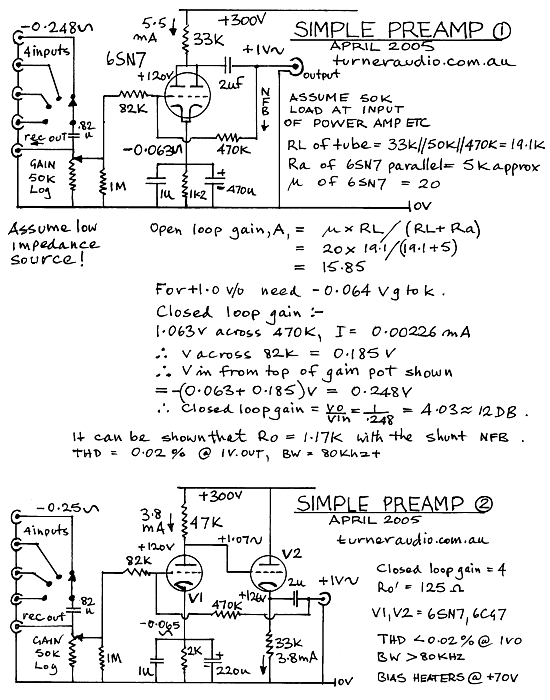 SIMPLE PREAMP ①
APRIL 2005
turneraudio.com.au
-0.248~
4 inputs
rec out
.82
u
GAIN
50K
Log
1M
82K
6SN7
5.5
mA
+300V
33K
+120V
2uf
+1V~
output
NFB
470K
-0.063~
1u
1k2
470u
0V
ASSUME 50K
LOAD AT INPUT
OF POWER AMP ETC
RL of tube = 33K//50K//470K = 19.1K
Ra of 6SN7 parallel = 5K approx
μ of 6SN7 = 20
Assume low
impedance
source!
Open loop gain, A, = μ x RL / (RL + Ra)
= 20 x 19.1/(19.1+5)
= 15.85
For +1.0 v/o need -0.064 V g to k.
Closed loop gain :-
1.063V across 470K, I = 0.00226 mA
∴ V across 82K = 0.185V
∴ Vin from top of gain pot shown
= -(0.063 + 0.185)V = 0.248V
∴ Closed loop gain = Vo/Vin = 1/.248 = 4.03 ≈ 12DB.
It can be shown that Ro = 1.17K with the shunt NFB.
THD = 0.02% @ 1V.OUT, BW = 80KHz+
SIMPLE PREAMP ②
APRIL 2005
turneraudio.com.au
-0.25~
4 inputs
rec out
.82
u
GAIN
50K
Log
1M
82K
3.8
mA
+300V
47K
+120V
+1.07~
V1
V2
+126V
2u
+1V~
470K
-0.065
1u
2K
220u
33K
3.8mA
0V
Closed loop gain = 4
Ro' = 125 Ω
V1, V2 = 6SN7, 6CG7
THD <0.02% @ 1V0
BW > 80KHZ
BIAS HEATERS @ +70V